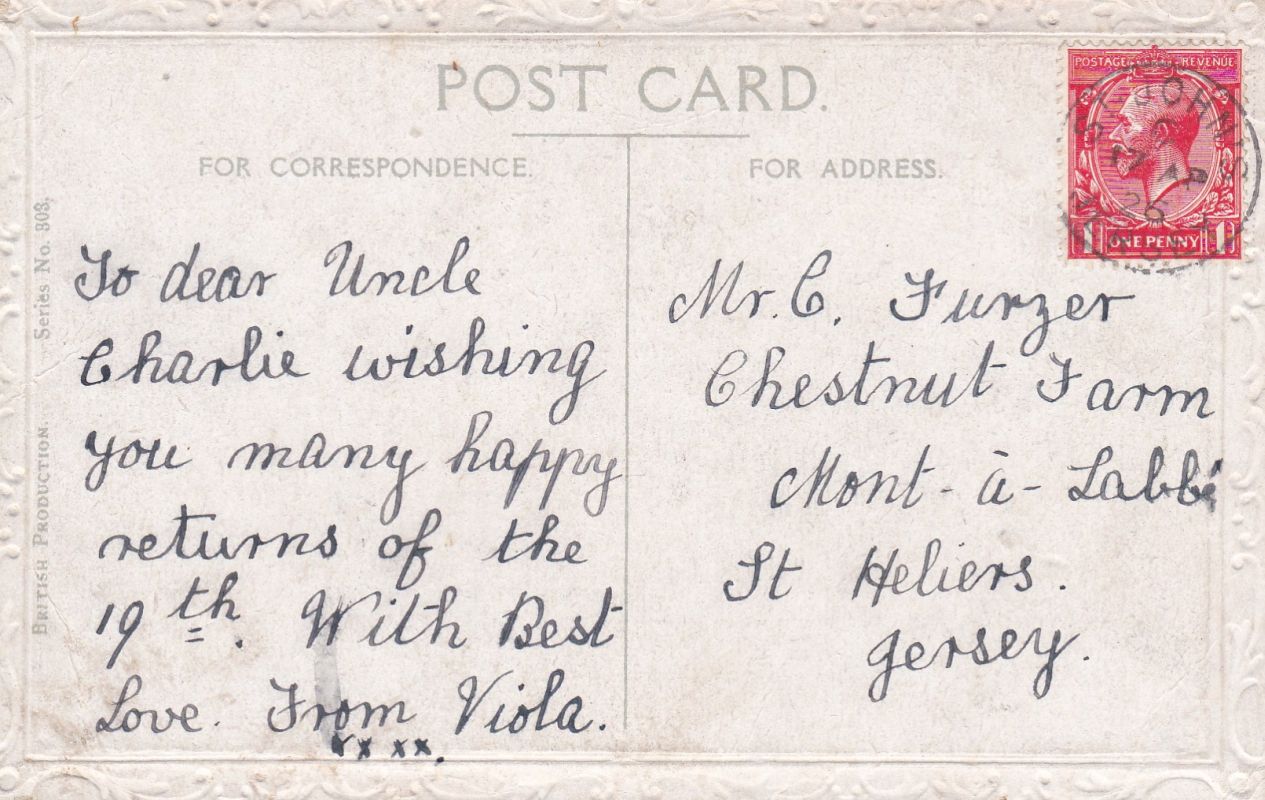 POST CARD.
FOR CORRESPONDENCE.
FOR ADDRESS.
BRITISH PRODUCTION. Series No. 303.
To dear Uncle
Charlie wishing
you many happy
returns of the
19th. With Best
Love. From Viola.
xx xx.
Mr. C. Furzer
Chestnut Farm
Mont-à-Labbé
St Heliers.
Jersey.
POSTAGE REVENUE
ONE PENNY
1 1
ST JOHN'S
17 AP
26